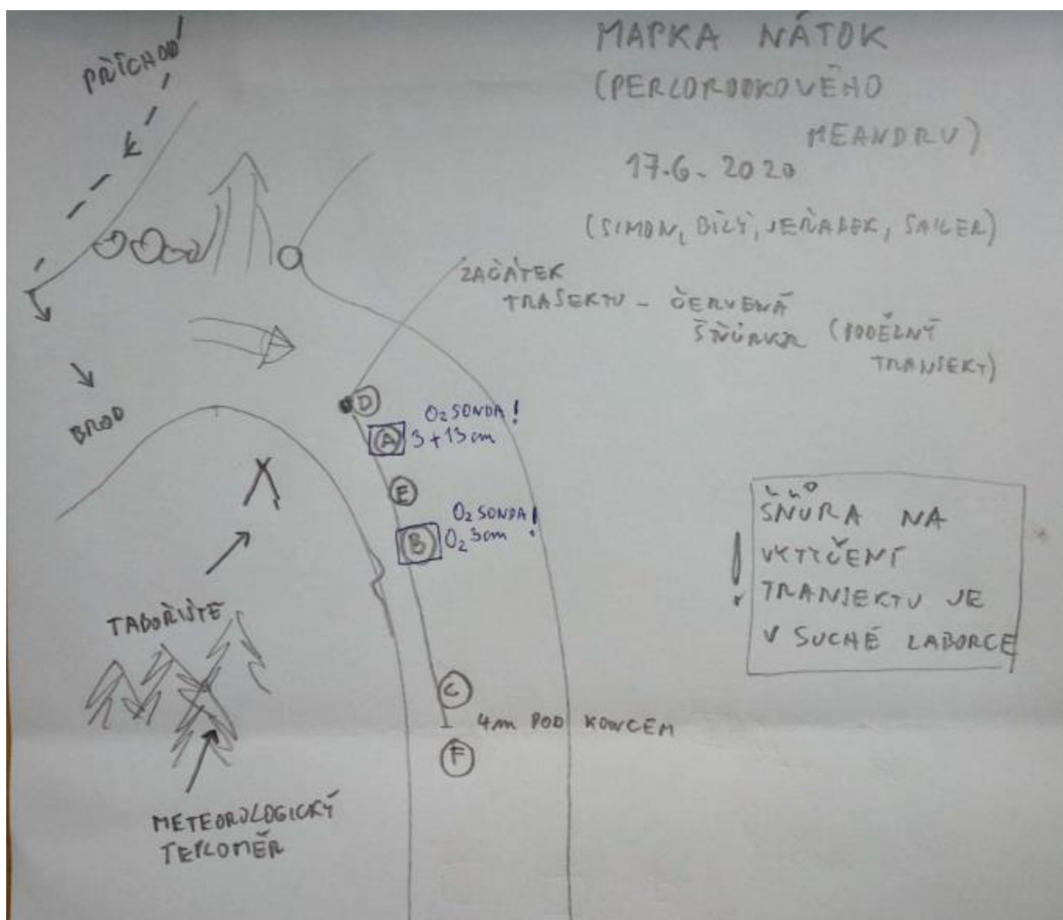 PŘÍCHOD
MAPKA NÁTOK
(PERLORODKOVÉHO
MEANDRU)
17.6. 2020
(SIMON, BÍLÝ, JEŘÁBEK, SAILER)
ZAČÁTEK
TRASEKTU - ČERVENÁ
ŠŇŮRKA (PODÉLNÝ
TRANSEKT)
BROD
D
O2 SONDA!
A 3+13cm
E
O2 SONDA!
B O2 3cm
ŠŇŮRA NA
VYTYČENÍ
! TRANSEKTU JE
V SUCHÉ LABORCE
TABOŘIŠTĚ
C
4m POD KONCEM
F
METEOROLOGICKÝ
TEPLOMĚR